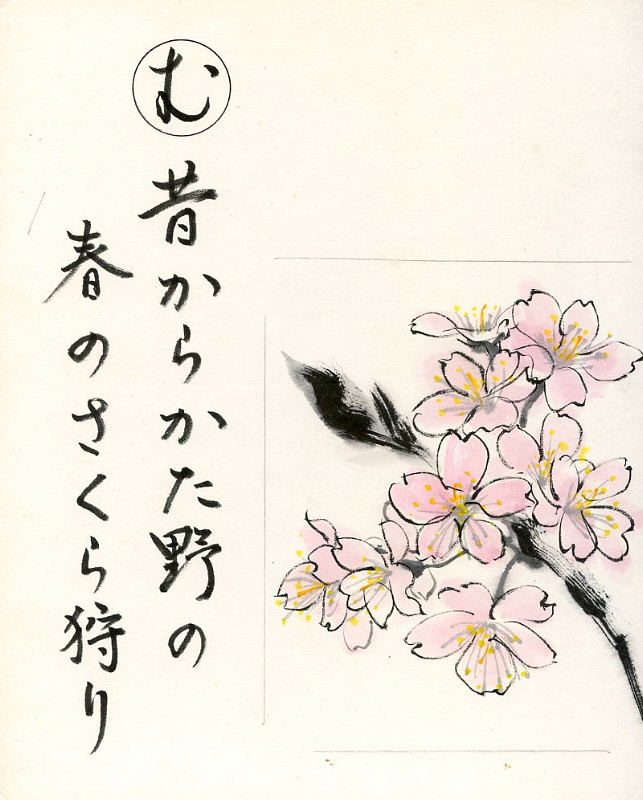 む
昔からかた野の
春のさくら狩り